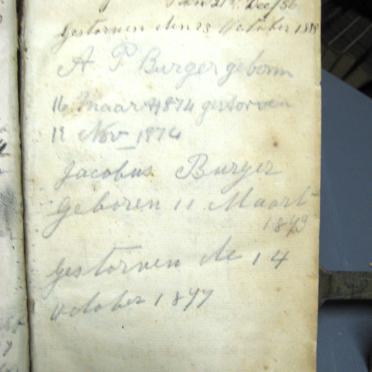 Dec/56
Gestorven den 23 October 18
A P Burger geboorn
16 Maart 1874 gestorven
12 Nov 1874
Jacobus Burger
Geboren 11 Maart
18
gestorven de 14
October 1877